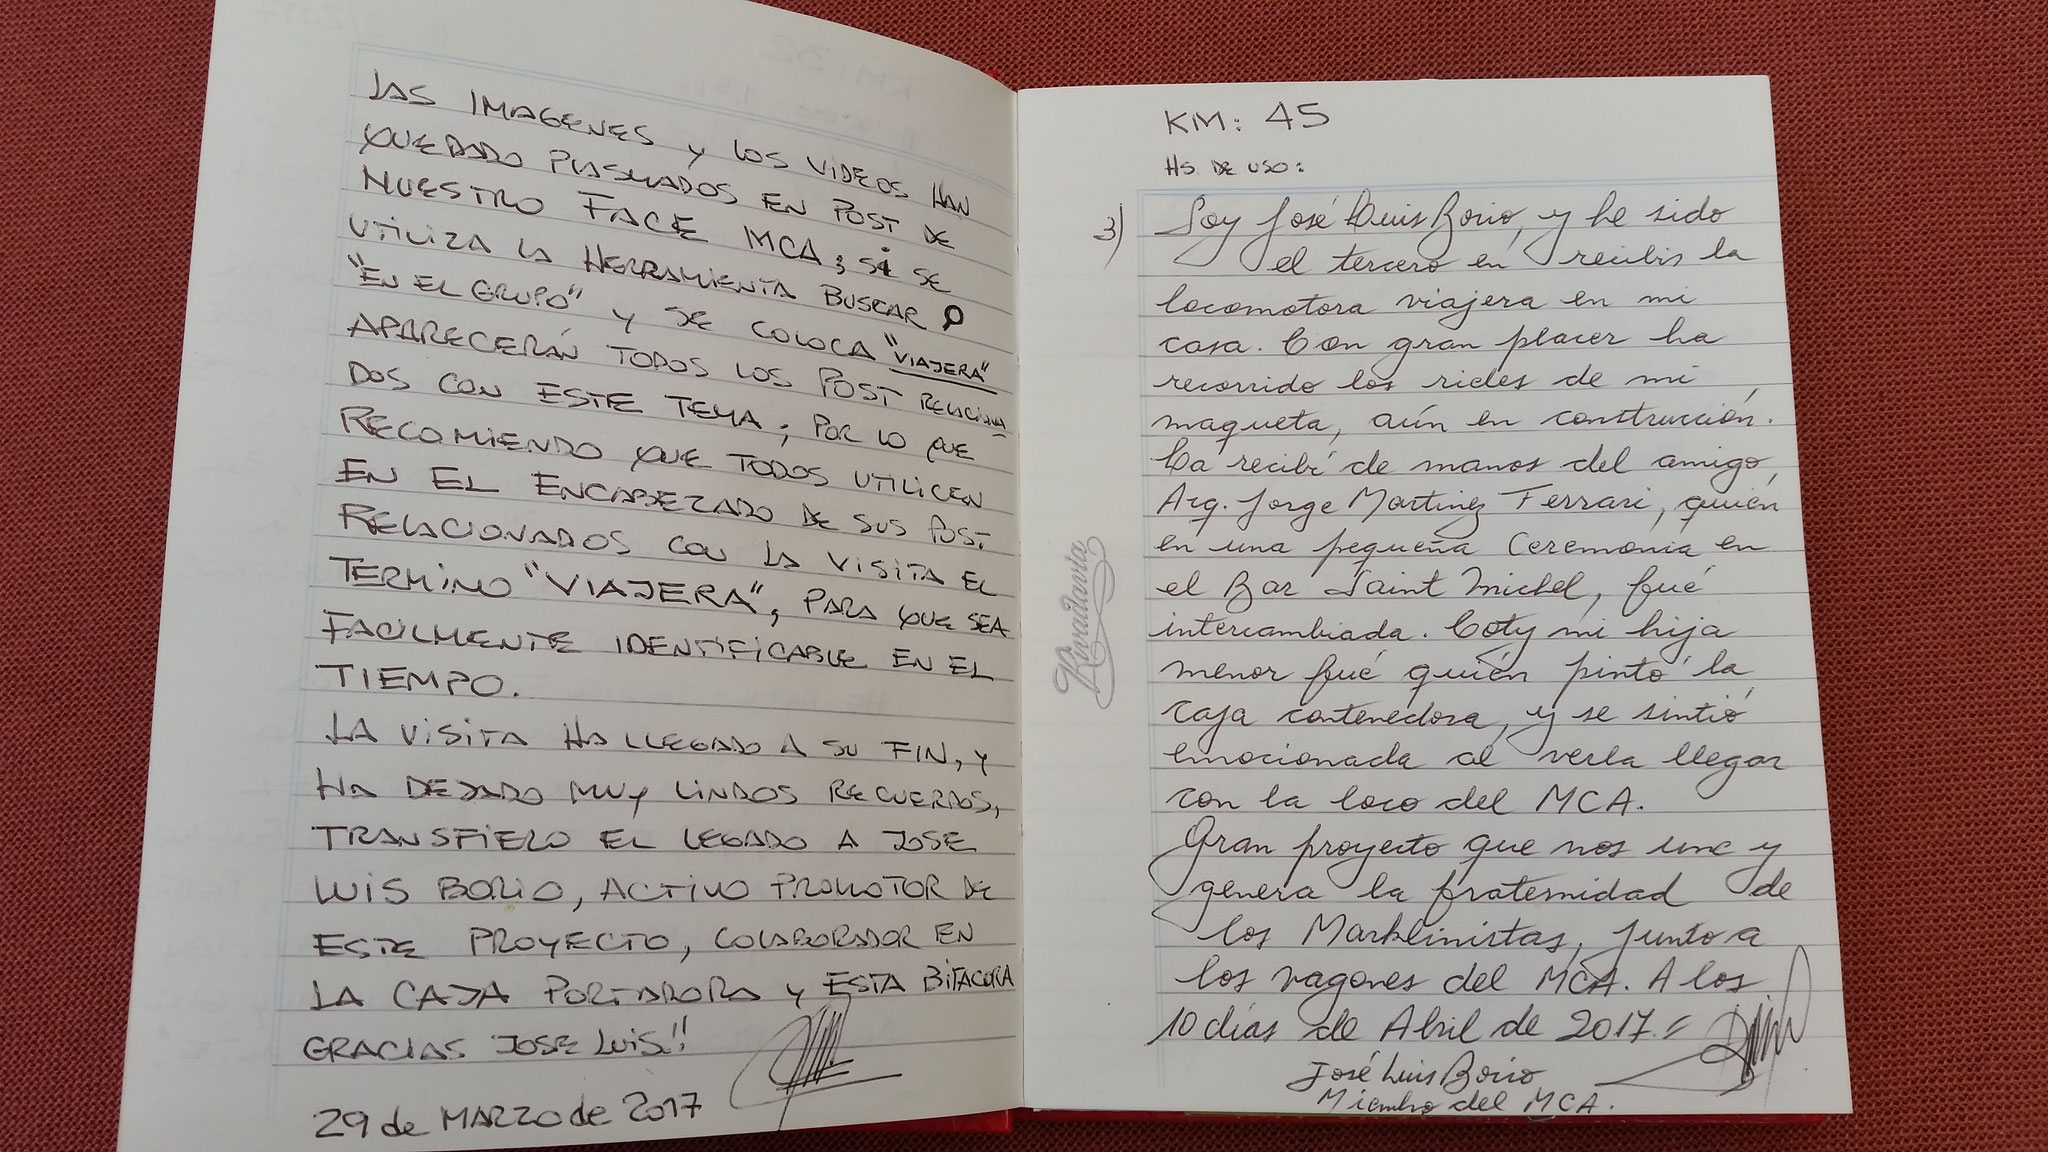 LAS IMAGENES Y LOS VIDEOS HAN
QUEDADO PLASMADOS EN POST DE
NUESTRO FACE MCA; SI SE
UTILIZA LA HERRAMIENTA BUSCAR
"EN EL GRUPO" Y SE COLOCA "VIAJERA"
APARECERÁN TODOS LOS POST RELACIONA
DOS CON ESTE TEMA; POR LO QUE
RECOMIENDO QUE TODOS UTILICEN
EN EL ENCABEZADO DE SUS POST
RELACIONADOS CON LA VISITA EL
TERMINO "VIAJERA", PARA QUE SEA
FACILMENTE IDENTIFICABLE EN EL
TIEMPO.
LA VISITA HA LLEGADO A SU FIN, Y
HA DEJADO MUY LINDOS RECUERDOS,
TRANSFIERO EL LEGADO A JOSE
LUIS BORIO, ACTIVO PROMOTOR DE
ESTE PROYECTO, COLABORADOR EN
LA CAJA PORTADORA Y ESTA BITACORA
GRACIAS JOSE LUIS!!
29 de MARZO de 2017
KM: 45
HS DE USO:
3) Soy José Luis Borio, y he sido
el tercero en recibir la
locomotora viajera en mi
casa. Con gran placer ha
recorrido los rieles de mi
maqueta, aún en construcción.
La recibí de manos del amigo,
Arq. Jorge Martinez Ferrari, quién
en una pequeña Ceremonia en
el Bar Saint Michel, fué
intercambiada. Coty mi hija
menor fué quién pintó la
caja contenedora, y se sintió
emocionada al verla llegar
con la loco del MCA.
Gran proyecto que nos une y
genera la fraternidad de
los Marklinistas, junto a
los vagones del MCA. A los
10 días de Abril de 2017.=
José Luis Borio
Miembro del MCA.
Rivadavia